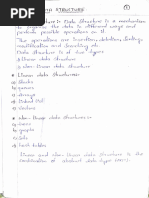 DATA STRUCTURE
①
Data Structure :- Data Structure is a mechanism
to organize the data in different ways and
perform possible operations on it.
The operations are insertion, deletion,
modification and
Data structure is of two types
1) Linear data structure
2) Non-linear data structure
* Linear data structures:-
a) Stacks
b) queues
c) Arrays
d) Linked list
e)
* Non-linear data structures:-
a) trees
b) graphs
c)
d) hash tables
Linear and non-linear data structure is the
modification of abstract data type (ADT).